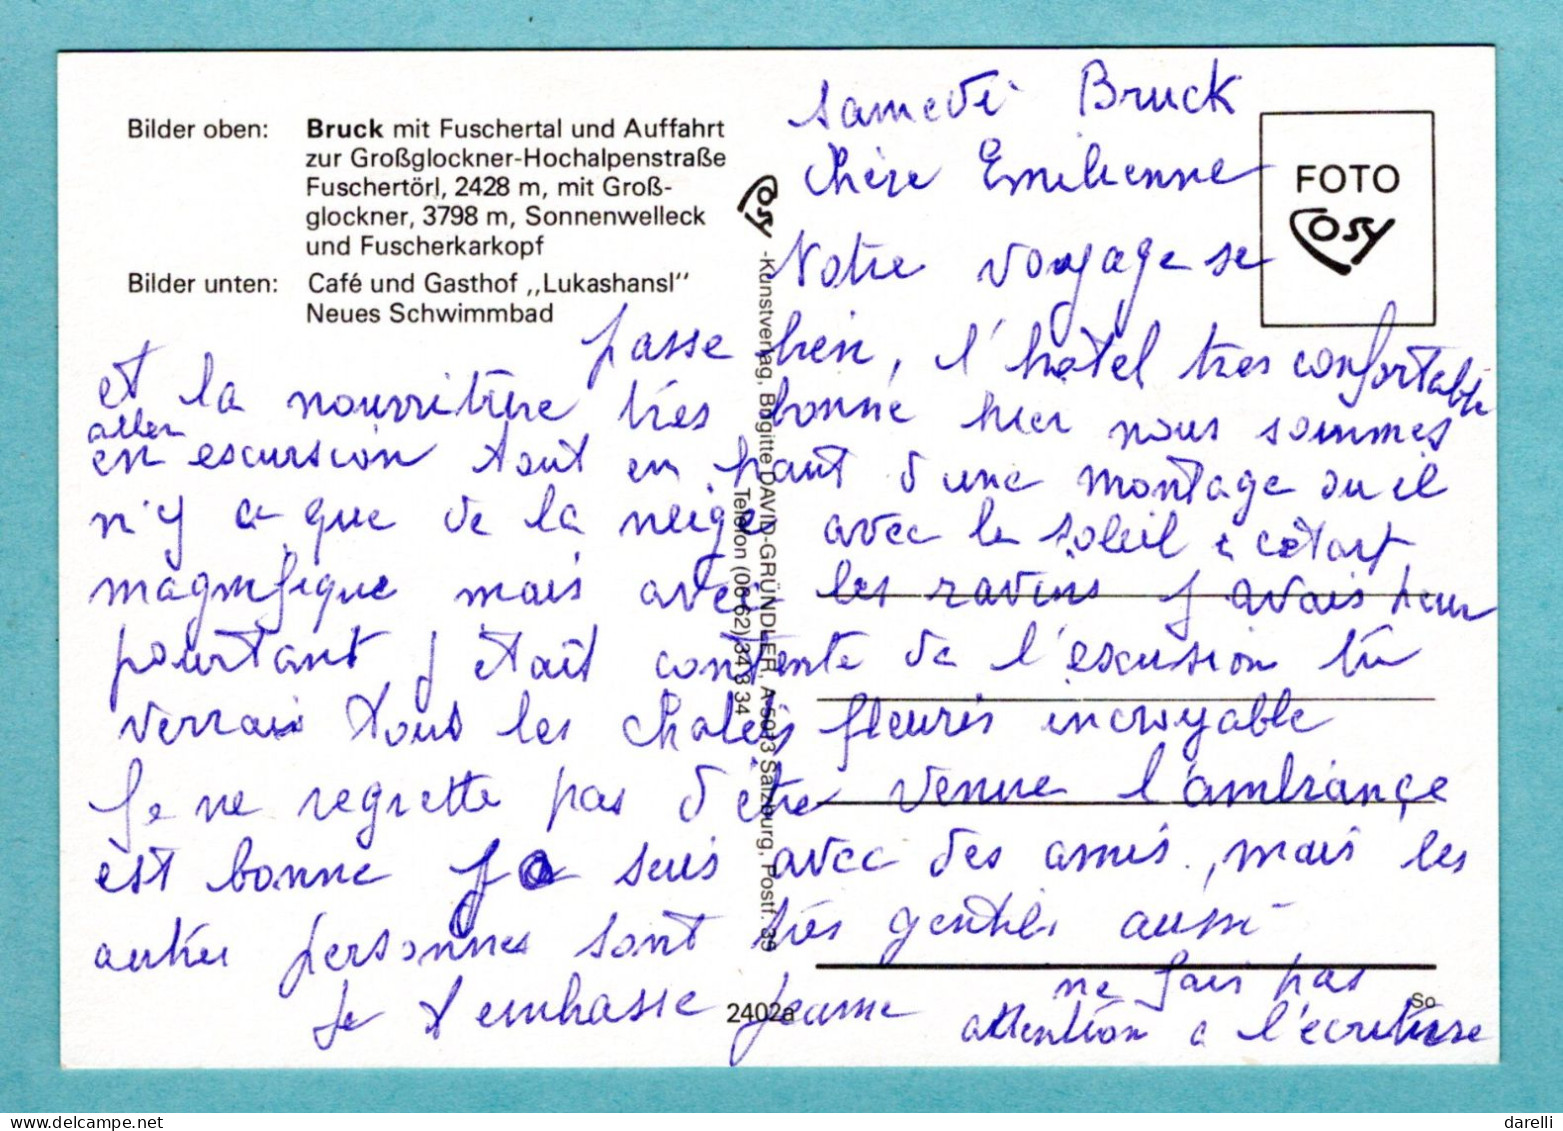 Bilder oben: Bruck mit Fuschertal und Auffahrt
zur Großglockner-Hochalpenstraße
Fuschertörl, 2428 m, mit Groß-
glockner, 3798 m, Sonnenwelleck
und Fuscherkarkopf
Bilder unten: Café und Gasthof „Lukashansl"
Neues Schwimmbad
Cosy -Kunstverlag, Bogitte DAVID-GRÜNDLER, A-5013 Salzburg, Postf. 39
Telefon (06 62) 34 8 34
FOTO
Cosy
samedi Bruck
chère Emilienne
Notre voyage se
passe bien, l'hôtel tres confortable
et la nourriture très bonne hier nous sommes
aller
en escursion tout en haut d'une montage ou il
n'y a que de la neige avec le soleil c'etart
magnifique mais avec les ravins j'avais peur
pourtant j'était contente de l'escusion tu
verrais tous les chalets fleuris incroyable
Je ne regrette pas d'être venue l'ambiançe
èst bonne je suis avec des amis, mais les
autres personnes sont très gentils aussi
Je t'embrasse Jeanne
ne fais pas
attention a l'écriture
2402a
So
darelli